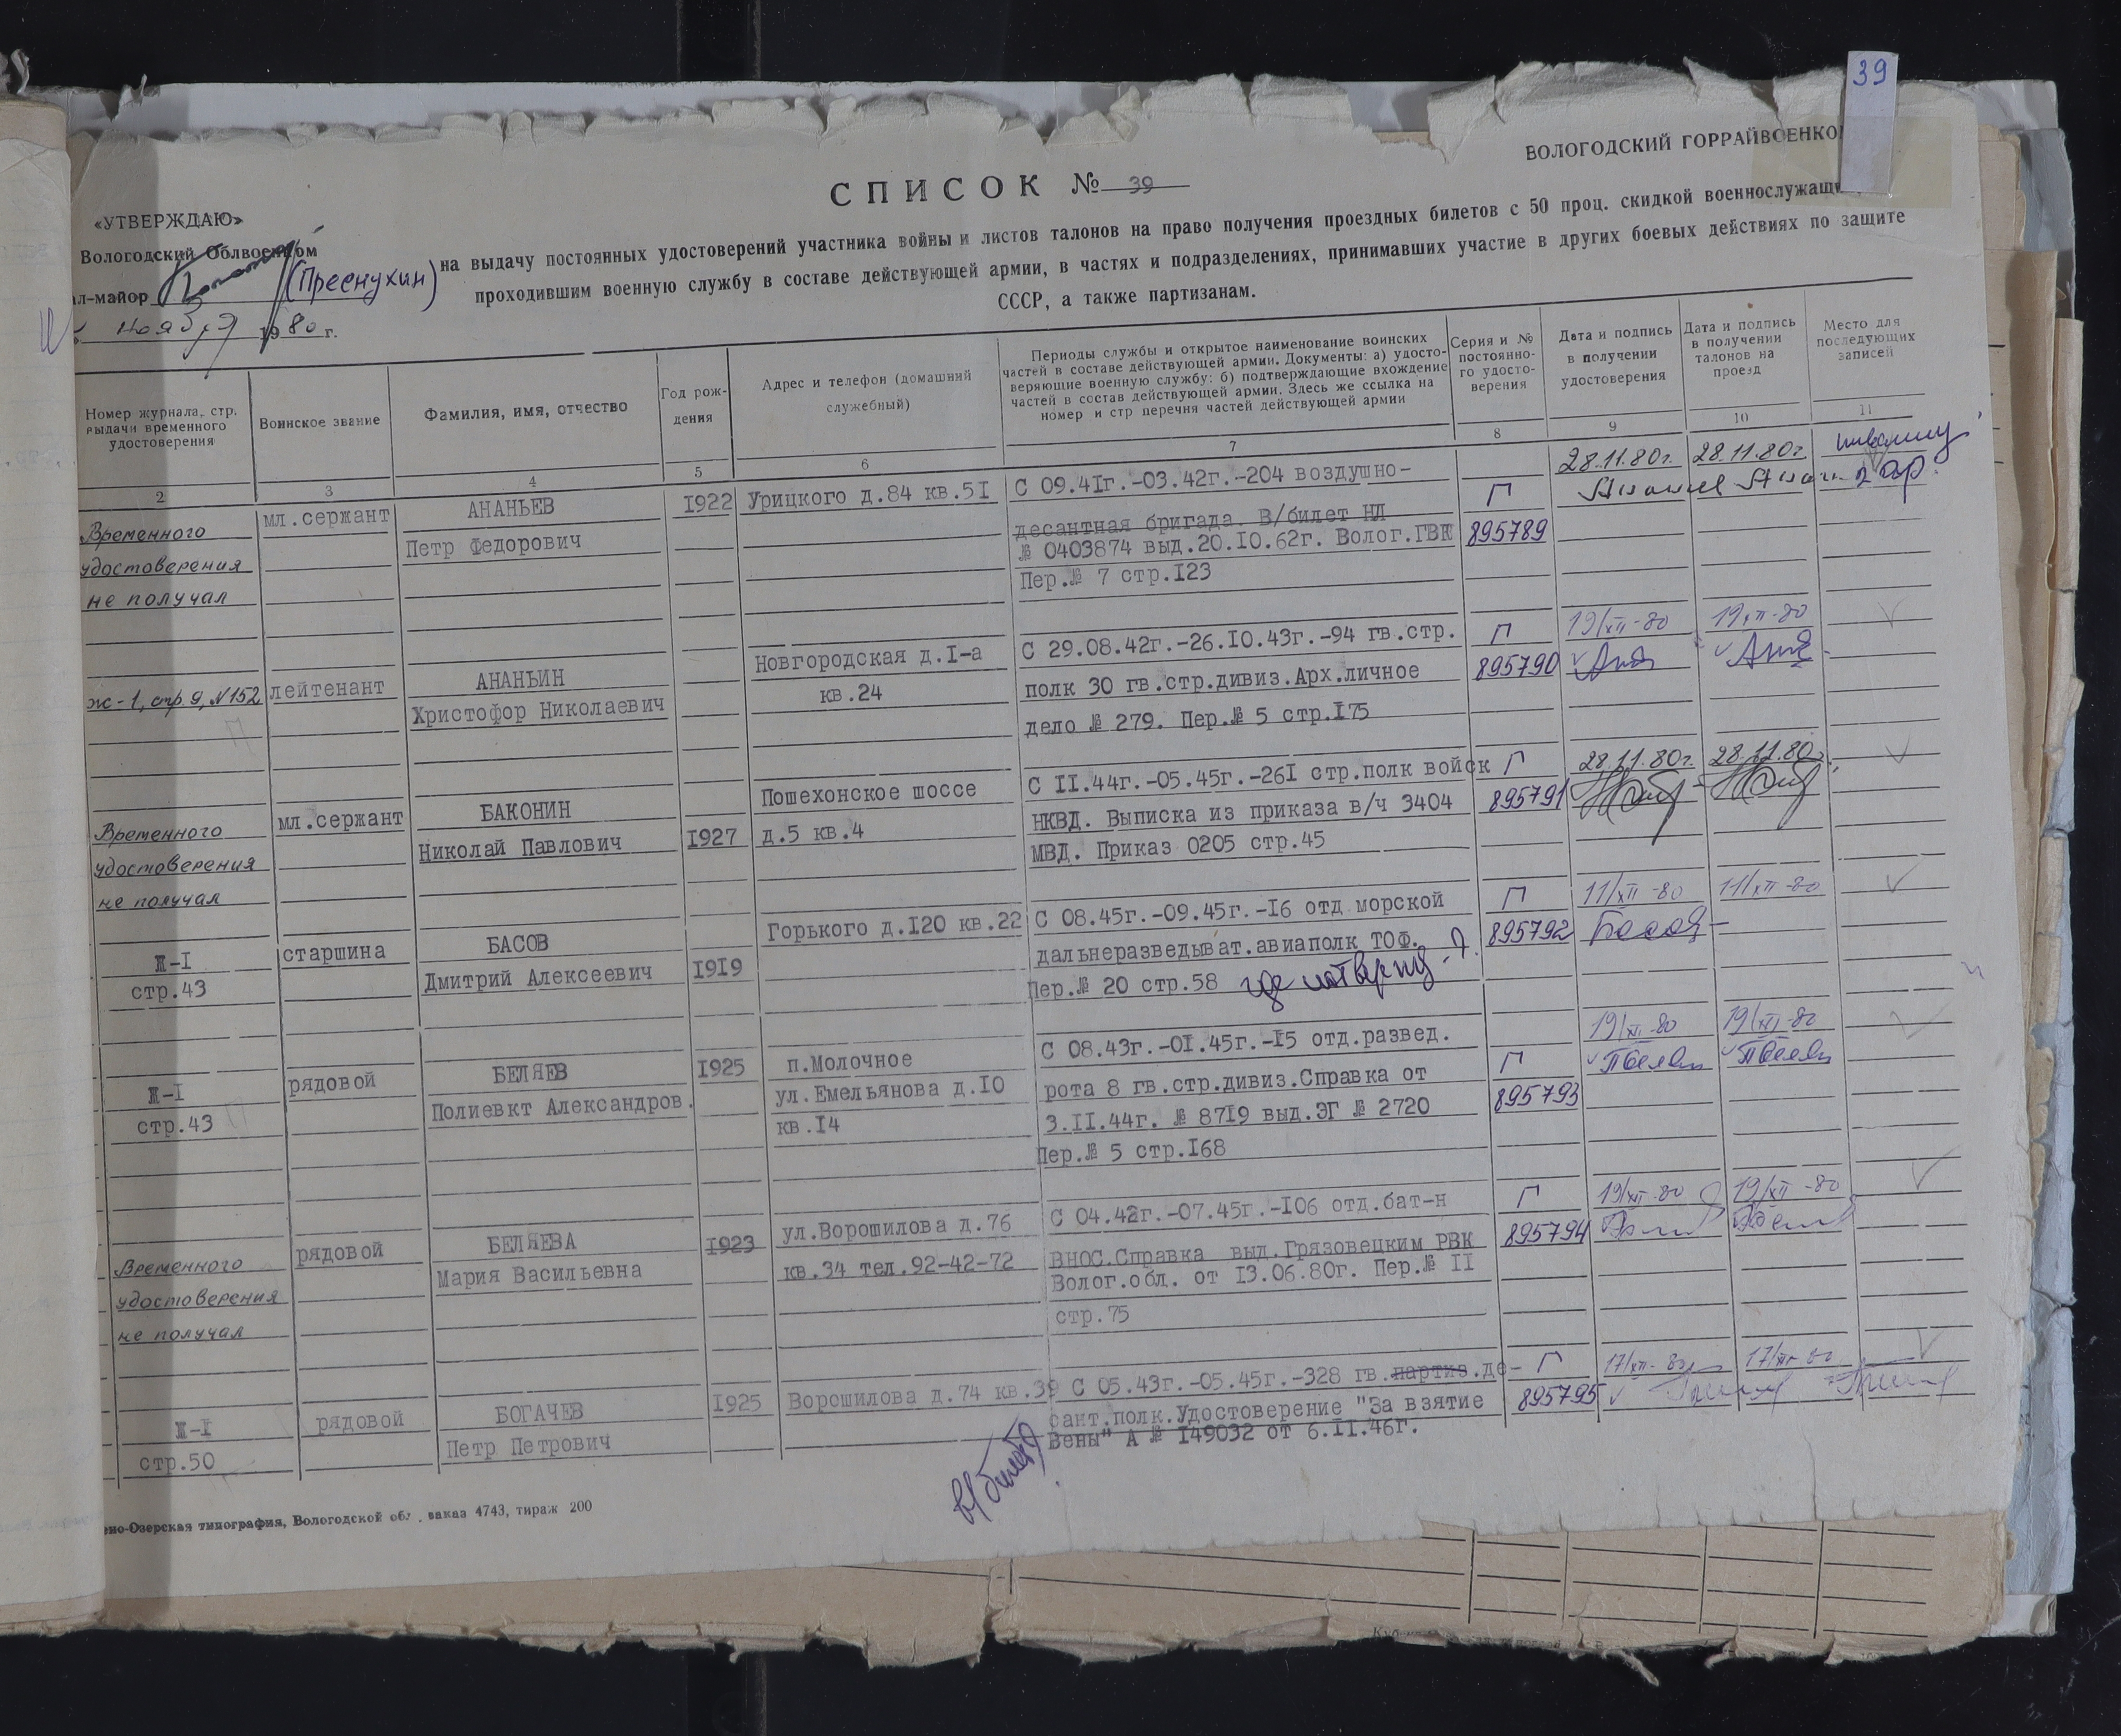 39
ВОЛОГОДСКИЙ ГОРРАЙВОЕНКО
СПИСОК № 39
«УТВЕРЖДАЮ»
Вологодский Облвоенком
ал-майор (Преснухин)
ноября 1980 г.
на выдачу постоянных удостоверений участника войны и листов талонов на право получения проездных билетов с 50 проц. скидкой военнослужащи
проходившим военную службу в составе действующей армии, в частях и подразделениях, принимавших участие в других боевых действиях по защите
СССР, а также партизанам.
Номер журнала, стр. выдачи временного удостоверения
Воинское звание
Фамилия, имя, отчество
Год рождения
Адрес и телефон (домашний служебный)
Периоды службы и открытое наименование воинских
частей в составе действующей армии. Документы: а) удосто-
веряющие военную службу; б) подтверждающие вхождение
частей в состав действующей армии. Здесь же ссылка на
номер и стр перечня частей действующей армии
Серия и № постоянно-го удосто-верения
Дата и подпись в получении удостоверения
Дата и подпись в получении талонов на проезд
Место для последующих записей
2 3 4 5 6 7 8 9 10 11
Временного удостоверения не получал
мл.сержант
АНАНЬЕВ
Петр Федорович
1922
Урицкого д.84 кв.51
С 09.41г.-03.42г.-204 воздушно-
десантная бригада. В/билет НЛ
№ 0403874 выд.20.10.62г. Волог.ГВК
Пер.№ 7 стр.123
Г
895789
28.11.80г.
28.11.80г.
2 гр.
ж-1, стр 9, №152
лейтенант
АНАНЬИН
Христофор Николаевич
Новгородская д.1-а
кв.24
С 29.08.42г.-26.10.43г.-94 гв.стр.
полк 30 гв.стр.дивиз.Арх.личное
дело № 279. Пер.№ 5 стр.175
Г
895790
19/XII-80
19/XII-80
Временного удостоверения не получал
мл.сержант
БАКОНИН
Николай Павлович
1927
Пошехонское шоссе
д.5 кв.4
С 11.44г.-05.45г.-261 стр.полк войск
НКВД. Выписка из приказа в/ч 3404
МВД. Приказ 0205 стр.45
Г
895791
28.11.80г.
28.11.80г.
Ж-1
стр.43
старшина
БАСОВ
Дмитрий Алексеевич
1919
Горького д.120 кв.22
С 08.45г.-09.45г.-16 отд морской
дальнеразведыват.авиаполк ТОФ.
Пер.№ 20 стр.58
Г
895792
11/XII-80
11/XII-80
Ж-1
стр.43
рядовой
БЕЛЯЕВ
Полиевкт Александров.
1925
п.Молочное
ул.Емельянова д.10
кв.14
С 08.43г.-01.45г.-15 отд.развед.
рота 8 гв.стр.дивиз.Справка от
3.11.44г. № 8719 выд.ЭГ № 2720
Пер.№ 5 стр.168
Г
895793
19/XII-80
19/XII-80
Временного удостоверения не получал
рядовой
БЕЛЯЕВА
Мария Васильевна
1923
ул.Ворошилова д.76
кв.34 тел.92-42-72
С 04.42г.-07.45г.-106 отд.бат-н
ВНОС.Справка выд.Грязовецким РВК
Волог.обл. от 13.06.80г. Пер.№ 11
стр.75
Г
895794
19/XII-80
19/XII-80
Ж-1
стр.50
рядовой
БОГАЧЕВ
Петр Петрович
1925
Ворошилова д.74 кв.39
С 05.43г.-05.45г.-328 гв.партиз.де-
сант.полк.Удостоверение "За взятие
Вены" А № 149032 от 6.11.46г.
Г
895795
17/XII-80
17/XII-80
в/билет
но-Озерская типография, Вологодской обл., заказ 4743, тираж 200